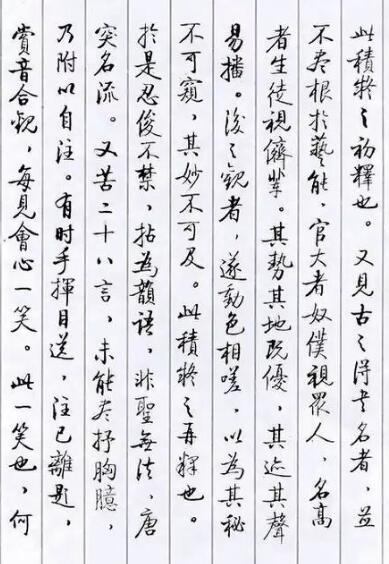 此積疑之初釋也。又見古之得書名者，並
不盡根於藝能，官大者奴僕視眾人，名高
者生徒視儕輩。其勢其地既優，其迹其聲
易播。後之觀者，遂動色相嗟，以為其秘
不可窺，其妙不可及。此積疑之再釋也。
於是忍俊不禁，拈為韻語，非聖無法，唐
突名流。又苦二十八言，未能盡抒胸臆，
乃附以自注。有时手揮目送，注已離題，
賞音合，每見會心一笑。此一笑也，何